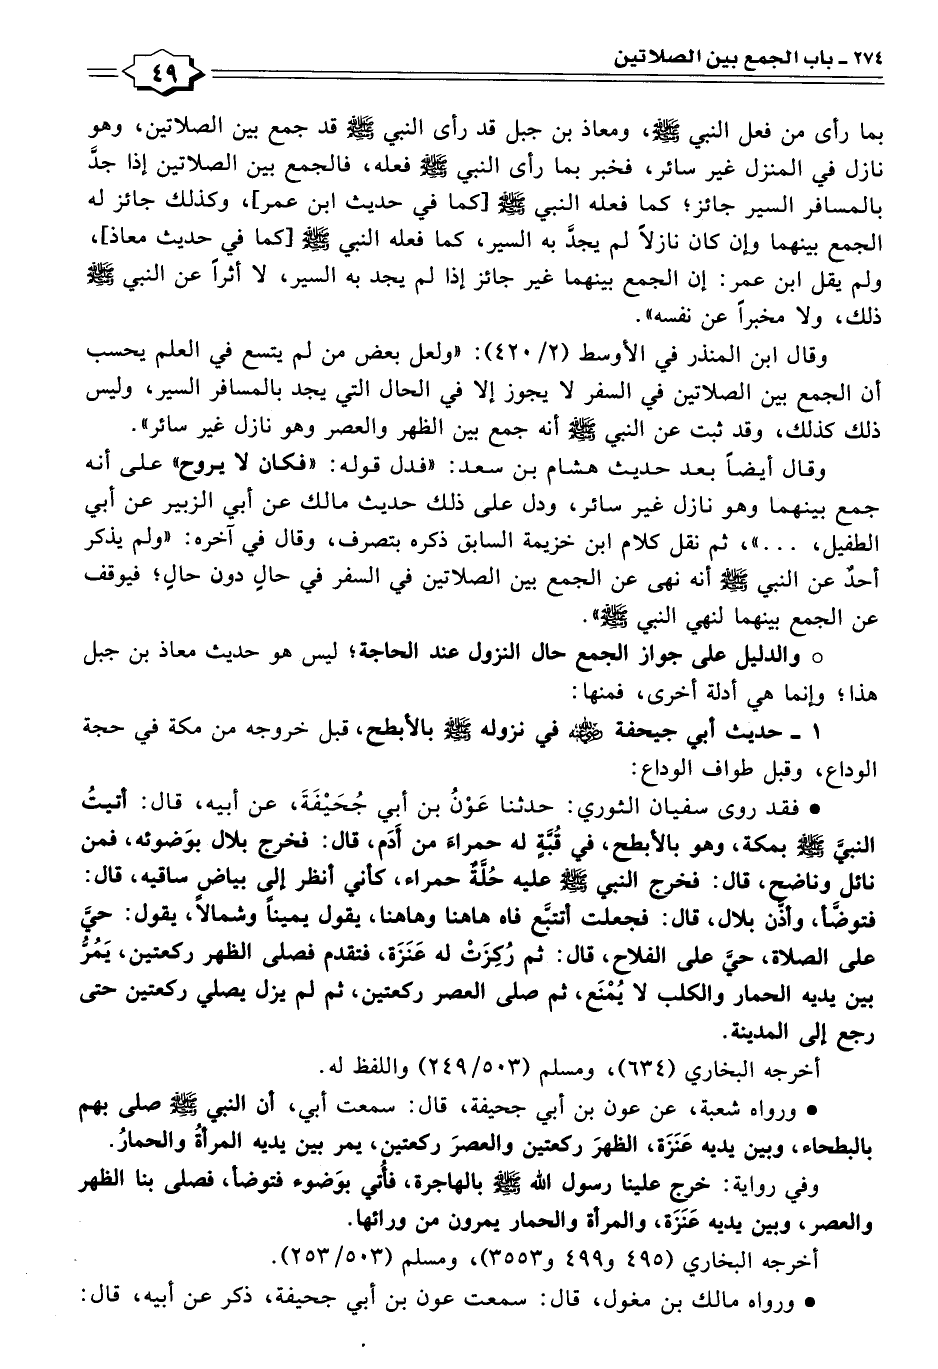 ٢٧٤ ـ باب الجمع بين الصلاتين
٤٩
بما رأى من فعل النبي ﷺ، ومعاذ بن جبل قد رأى النبي ﷺ قد جمع بين الصلاتين، وهو
نازل في المنزل غير سائر، فخبر بما رأى النبي ﷺ فعله، فالجمع بين الصلاتين إذا جدَّ
بالمسافر السير جائز؛ كما فعله النبي ﷺ [كما في حديث ابن عمر]، وكذلك جائز له
الجمع بينهما وإن كان نازلاً لم يجدَّ به السير، كما فعله النبي ﷺ [كما في حديث معاذ]،
ولم يقل ابن عمر: إن الجمع بينهما غير جائز إذا لم يجد به السير، لا أثراً عن النبي ﷺ
ذلك، ولا مخبراً عن نفسه».
وقال ابن المنذر في الأوسط (٤٢٠/٢): «ولعل بعض من لم يتسع في العلم يحسب
أن الجمع بين الصلاتين في السفر لا يجوز إلا في الحال التي يجد بالمسافر السير، وليس
ذلك كذلك، وقد ثبت عن النبي ﷺ أنه جمع بين الظهر والعصر وهو نازل غير سائر».
وقال أيضاً بعد حديث هشام بن سعد: «فدل قوله: «فكان لا يروح» على أنه
جمع بينهما وهو نازل غير سائر، ودل على ذلك حديث مالك عن أبي الزبير عن أبي
الطفيل، ...»، ثم نقل كلام ابن خزيمة السابق ذكره بتصرف، وقال في آخره: «ولم يذكر
أحدٌ عن النبي ﷺ أنه نهى عن الجمع بين الصلاتين في السفر في حالٍ دون حالٍ؛ فيوقف
عن الجمع بينهما لنهي النبي ﷺ».
○ والدليل على جواز الجمع حال النزول عند الحاجة؛ ليس هو حديث معاذ بن جبل
هذا؛ وإنما هي أدلة أخرى، فمنها:
١ ـ حديث أبي جيحفة رضي الله عنه في نزوله ﷺ بالأبطح، قبل خروجه من مكة في حجة
الوداع، وقبل طواف الوداع:
● فقد روى سفيان الثوري: حدثنا عَوْنُ بن أبي جُحَيْفَةَ، عن أبيه، قال: أتيتُ
النبيَّ ﷺ بمكة، وهو بالأبطح، في قُبَّةٍ له حمراءَ من أَدَم، قال: فخرج بلال بوَضوئه، فمن
نائل وناضح، قال: فخرج النبي ﷺ عليه حُلَّةٌ حمراء، كأني أنظر إلى بياض ساقيه، قال:
فتوضَّأ، وأذَّن بلال، قال: فجعلت أتتبَّع فاه هاهنا وهاهنا، يقول يميناً وشمالاً، يقول: حيَّ
على الصلاة، حيَّ على الفلاح، قال: ثم رُكِزَتْ له عَنَزَة، فتقدم فصلى الظهر ركعتين، يَمُرُّ
بين يديه الحمار والكلب لا يُمْنَع، ثم صلى العصر ركعتين، ثم لم يزل يصلي ركعتين حتى
رجع إلى المدينة.
أخرجه البخاري (٦٣٤)، ومسلم (٢٤٩/٥٠٣) واللفظ له.
● ورواه شعبة، عن عون بن أبي جحيفة، قال: سمعت أبي، أن النبي ﷺ صلى بهم
بالبطحاء، وبين يديه عَنَزَة، الظهرَ ركعتين والعصرَ ركعتين، يمر بين يديه المرأةُ والحمارُ.
وفي رواية: خرج علينا رسول الله ﷺ بالهاجرة، فأُتي بوَضوء فتوضأ، فصلى بنا الظهر
والعصر، وبين يديه عَنَزَة، والمرأة والحمار يمرون من ورائها.
أخرجه البخاري (٤٩٥ و٤٩٩ و٣٥٥٣)، ومسلم (٢٥٣/٥٠٣).
● ورواه مالك بن مغول، قال: سمعت عون بن أبي جحيفة، ذكر عن أبيه، قال: